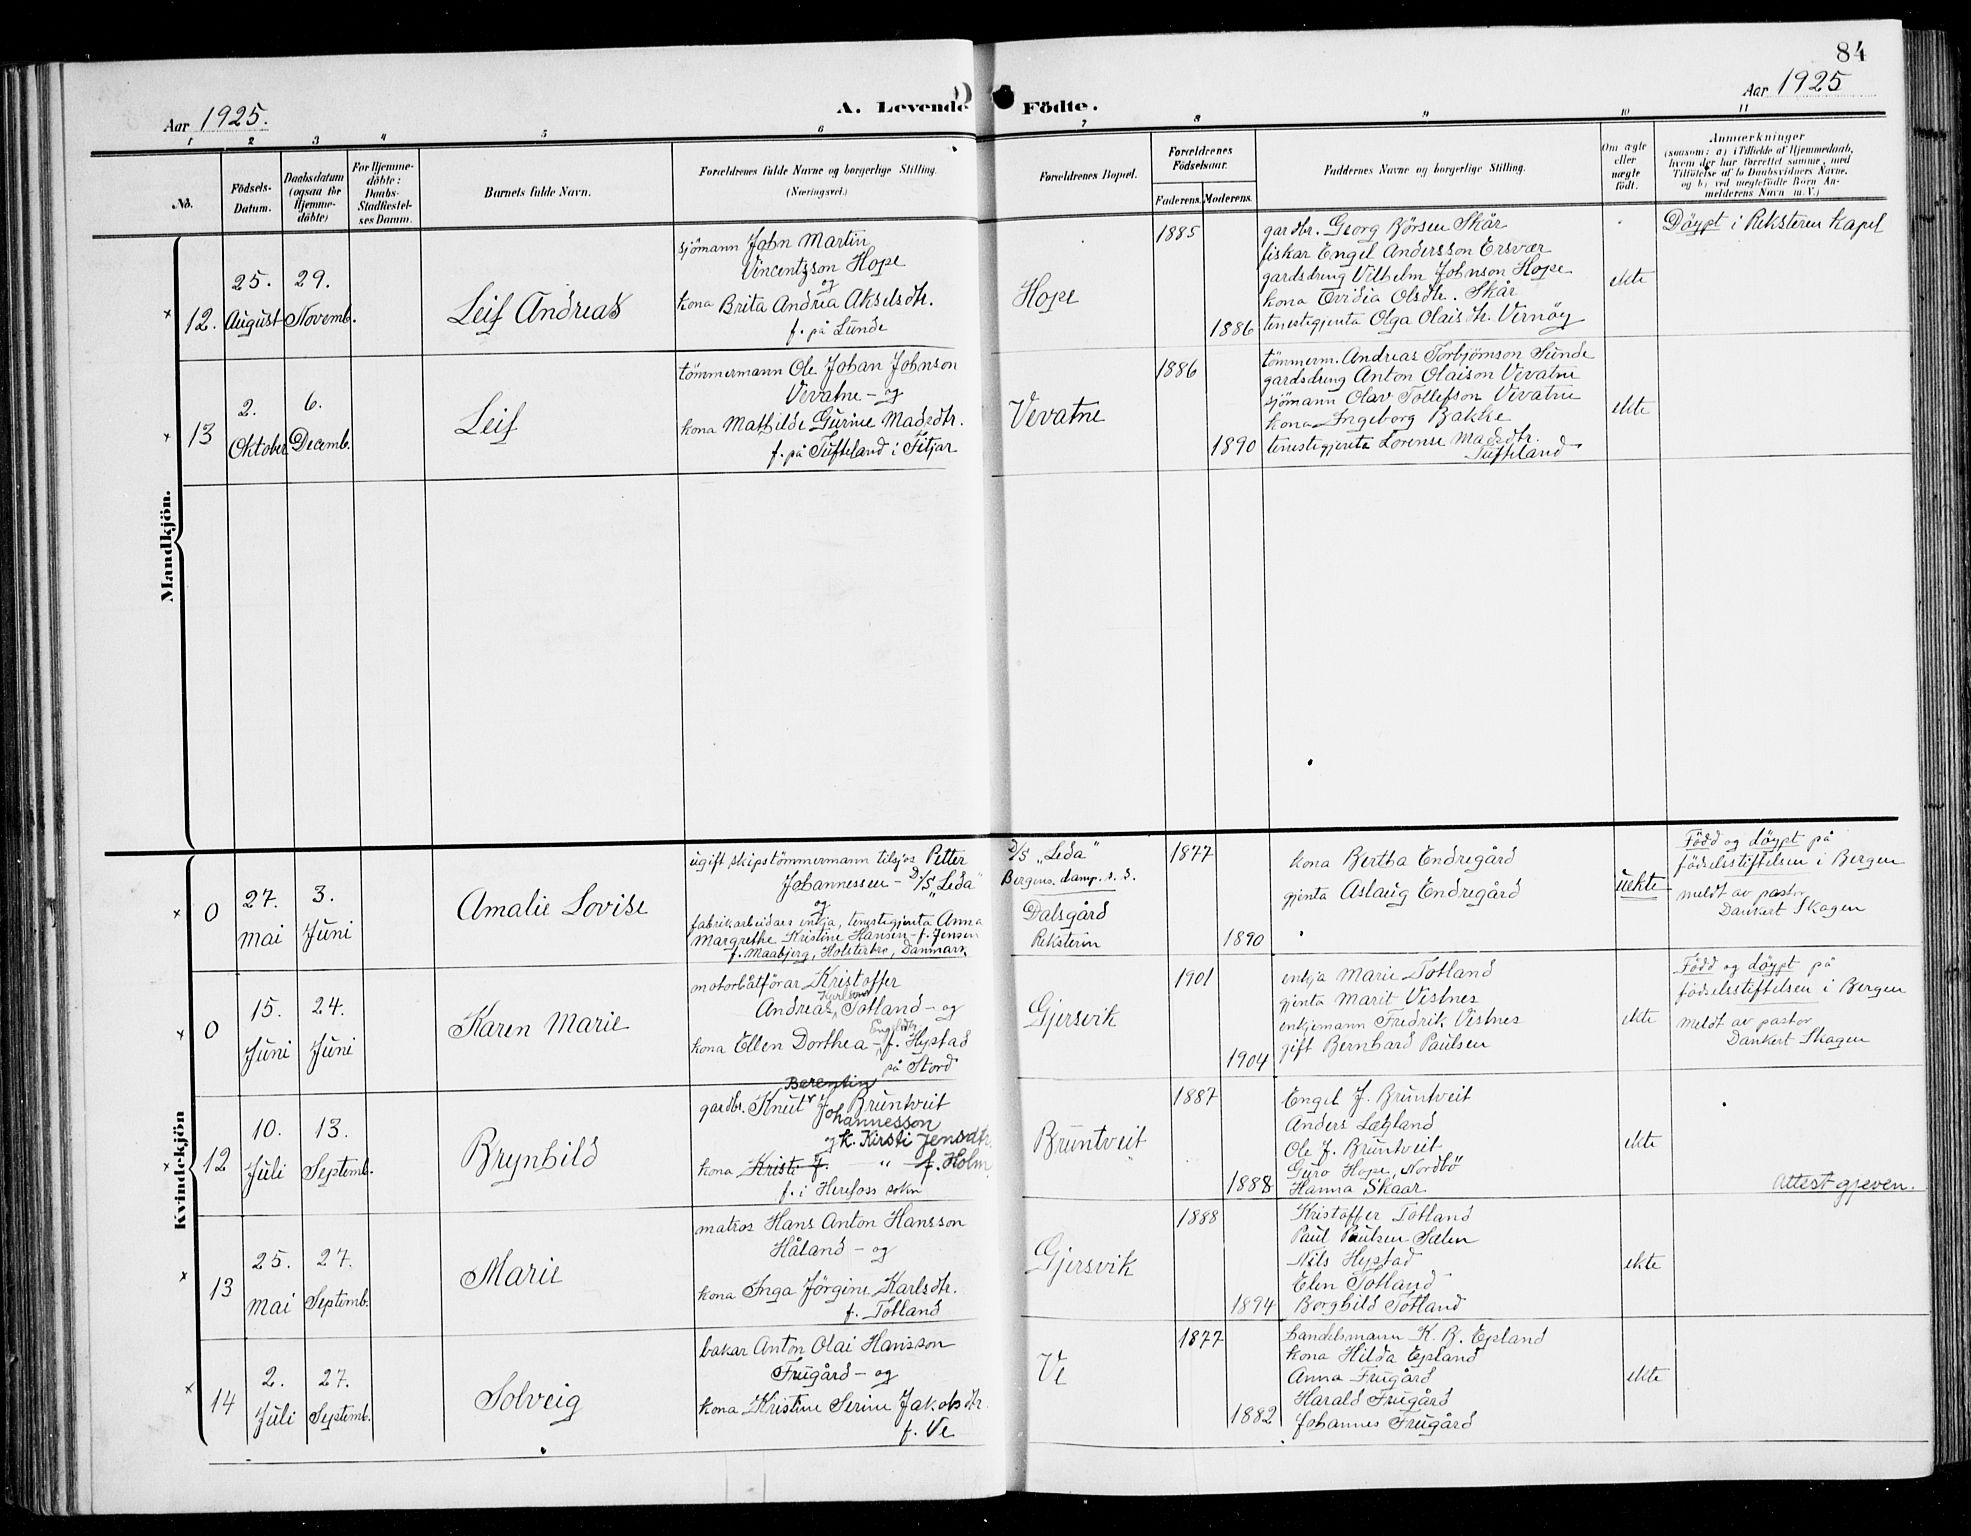 84
Aar 1925.
A. Levende Födte.
Aar 1925
1 2 3 4 5 6 7 8 9 10 11
No.
Födsels-Datum.
Daabsdatum (ogsaa for Hjemmedöbte)
For Hjemmedöbte: Daabs-Stadfæstelses Datum.
Barnets fulde Navn.
Forældrenes fulde Navne og borgerlige Stilling. (Næringsvei.)
Forældrenes Bopæl.
Forældrenes Födselsaar.
Faderens. Moderens.
Faddernes Navne og borgerlige Stilling.
Om ægte eller uægte födt.
Anmærkninger
(saasom: a) i Tilfælde af Hjemmedaab, hvem der har forrettet samme, med Tilföielse af to Daabsvidners Navne, og b) ved uægtefödte Börn Anmelderens Navn m. V.)
Mandkjön.
12.
25. August
29. Novemb.
Leif Andreas
sjömann John Martin
Vincentsson Hope
og
kona Brita Andrea Akselsdtr.
f. på Lunde
Hope
1885
1886
gardbr. Georg Börsen Skår
fiskar Engel Andersson Ersvær
gardsdreng Vilhelm Johnson Hope
kona Ovidia Olsdtr. Skår
tenestegjenta Olga Olaisdtr. Vernöy
ekte
Döypt i Reksteren Kapel
13
2. Oktober
6. Decemb.
Leif
tömmermann Ole Johan Johnson
Vevatne - og
kona Mathilde Gurine Madsdtr.
f. på Tufteland i Fitjar
Vevatne
1886
1890
tömmerm. Andreas Torbjörnson Sunde
gardsdreng Anton Olaison Vevatne
sjömann Olav Tollefson Vevatne
kona Ingeborg Bakke
tenestegjenta Lorense Madsdtr.
Tufteland
ekte
Kvindekjön
0
27. Mai
3. Juni
Amalie Lovise
ugift skipstömmermann tilsjøs Petter
Johannessen - D/S „Leda"
og
fabrikarbeidars enkja, tenestegjenta Anna
Margrethe Kristine Hansen - f. Jensen
f. Maabjerg, Holsterbro, Danmark
D/S „Leda"
Bergens. damp. s. s.
Dalsgård
Reksteren
1877
1890
kona Bertha Endregård
gjenta Aslaug Endregård
uekte
Född og döypt på
födselsstiftelsen i Bergen
meldt av pastor
Dankert Skagen
0
15. Juni
24. Juni
Karen Marie
motorbåtförar Kristoffer
Andreas Karlson Totland - og
kona Ellen Dorthea Engelsdtr - f. Hystad
på Stord
Gjersvik
1901
1904
enkja Marie Totland
gjenta Marit Vistnes
enkjemann Fredrik Vistnes
gift Bernhard Paulsen
ekte
Född og döypt på
födselsstiftelsen i Bergen
meldt av pastor
Dankert Skagen
12
10. Juli
13. Septemb.
Brynhild
Berentin
gardbr. Knut J Bruntveit
Johannesson
og k. Kirsti Jensdtr.
kona Kristi J. „ f. Holm
f. i Herefoss sokn
Bruntveit
1887
1888
Engel J. Bruntveit
Anders Lætland
Ole J. Bruntveit
Guro Hope, Nordbö
Hanna Skaar
ekte
Attest gjeven.
13
25. Mai
27. Septemb.
Marie
matros Hans Anton Hansson
Håland - og
kona Inga Jörgine Karlsdtr.
f. Totland
Gjersvik
1888
1894
Kristoffer Totland
Paul Paulsen Sælen
Nils Hystad
Elen Totland
Borghild Totland
ekte
14
2. Juli
27. Septemb.
Solveig
bakar Anton Olai Hansson
Frugård - og
kona Kristine Serine Jakobsdtr.
f. Ve
Ve
1877
1882
handelsmann K. B. Epland
kona Hilda Epland
Anna Frugård
Harald Frugård
Johannes Frugård
ekte